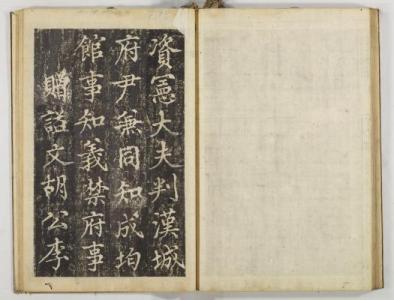 資憲大夫判漢城
府尹兼同知成均
館事知義禁府事
贈諡文胡公李